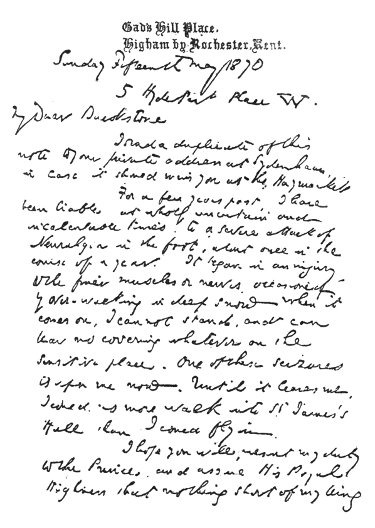 Gad's Hill Place,
Higham by Rochester, Kent.
Sunday Fifteenth May 1870
5 Hyde Park Place W.
My Dear Buckstone
I send a duplicate of this
note to your private address at Sydenham,
in case it should miss you at the Haymarket.
For a few years past, I have
been liable at wholly uncertain and
incalculable times to a severe attack of
Neuralgia in the foot, about once in the
course of a year. It began in an injury
to the finer muscles or nerves, occasioned
by over-walking in deep snow. When it
comes on, I cannot stand, and can
bear no covering whatever on the
sensitive place. One of these seizures
is upon me now. Until it leaves me,
I could no more walk into St. James's
Hall than I could fly in.
I hope you will present my duty
to the Prince, and assure His Royal
Highness that nothing short of my being